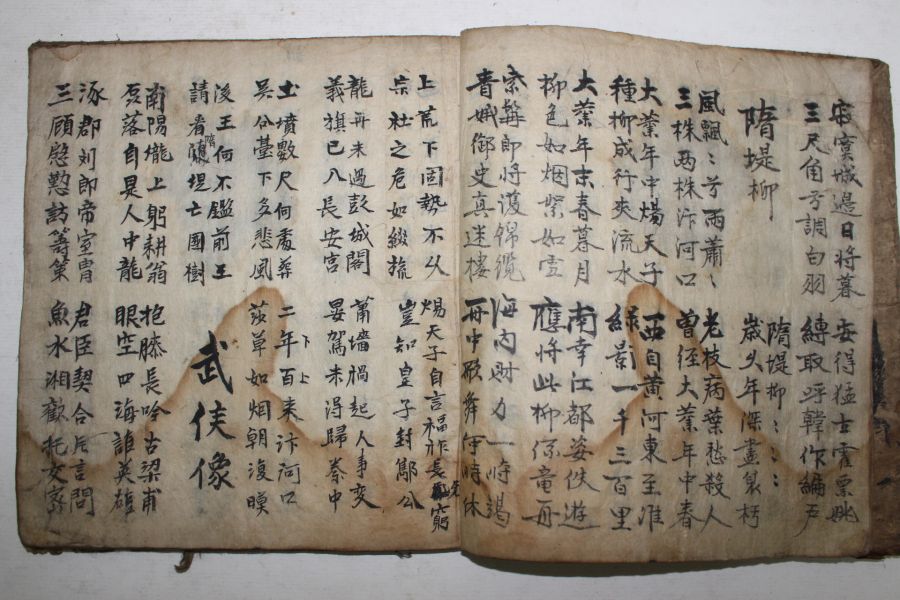 寂寞城邊日將暮
三尺角弓調白羽
安得猛士霍票姚
縛取呼韓作編戶
隋堤柳
隋堤柳〻〻
歲久年深盡衰朽
風飄〻兮雨蕭〻
三株两株汴河口
老枝病葉愁殺人
曾經大業年中春
大業年中煬天子
種柳成行夾流水
西自黃河東至淮
綠影一千三百里
大業年末春暮月
柳色如烟絮如雪
南幸江都姿佚遊
應將此柳係竜舟
紫髯郎將護錦纜
青娥御史真迷樓
海內財力一時竭
舟中歌舞何時休
上荒下困勢不久
宗社之危如綴旒
煬天子自言福祚長無窮
豈知皇子封酅公
龍舟未過彭城閣
義旗已入長安宮
蕭墻禍起人事變
晏駕未得歸秦中
土墳數尺何處葬
吳公臺下多悲風
二年百来汴河口
莎草如烟朝復暮
後王何不鑑前王
請看隋堤亡國樹
武侯像
南陽壠上躬耕翁
磊落自是人中龍
抱膝長吟古梁甫
眼空四海誰英雄
涿郡刘郎帝室胄
三顧慰懃訪籌策
君臣契合片言問
魚水湘歡托交密